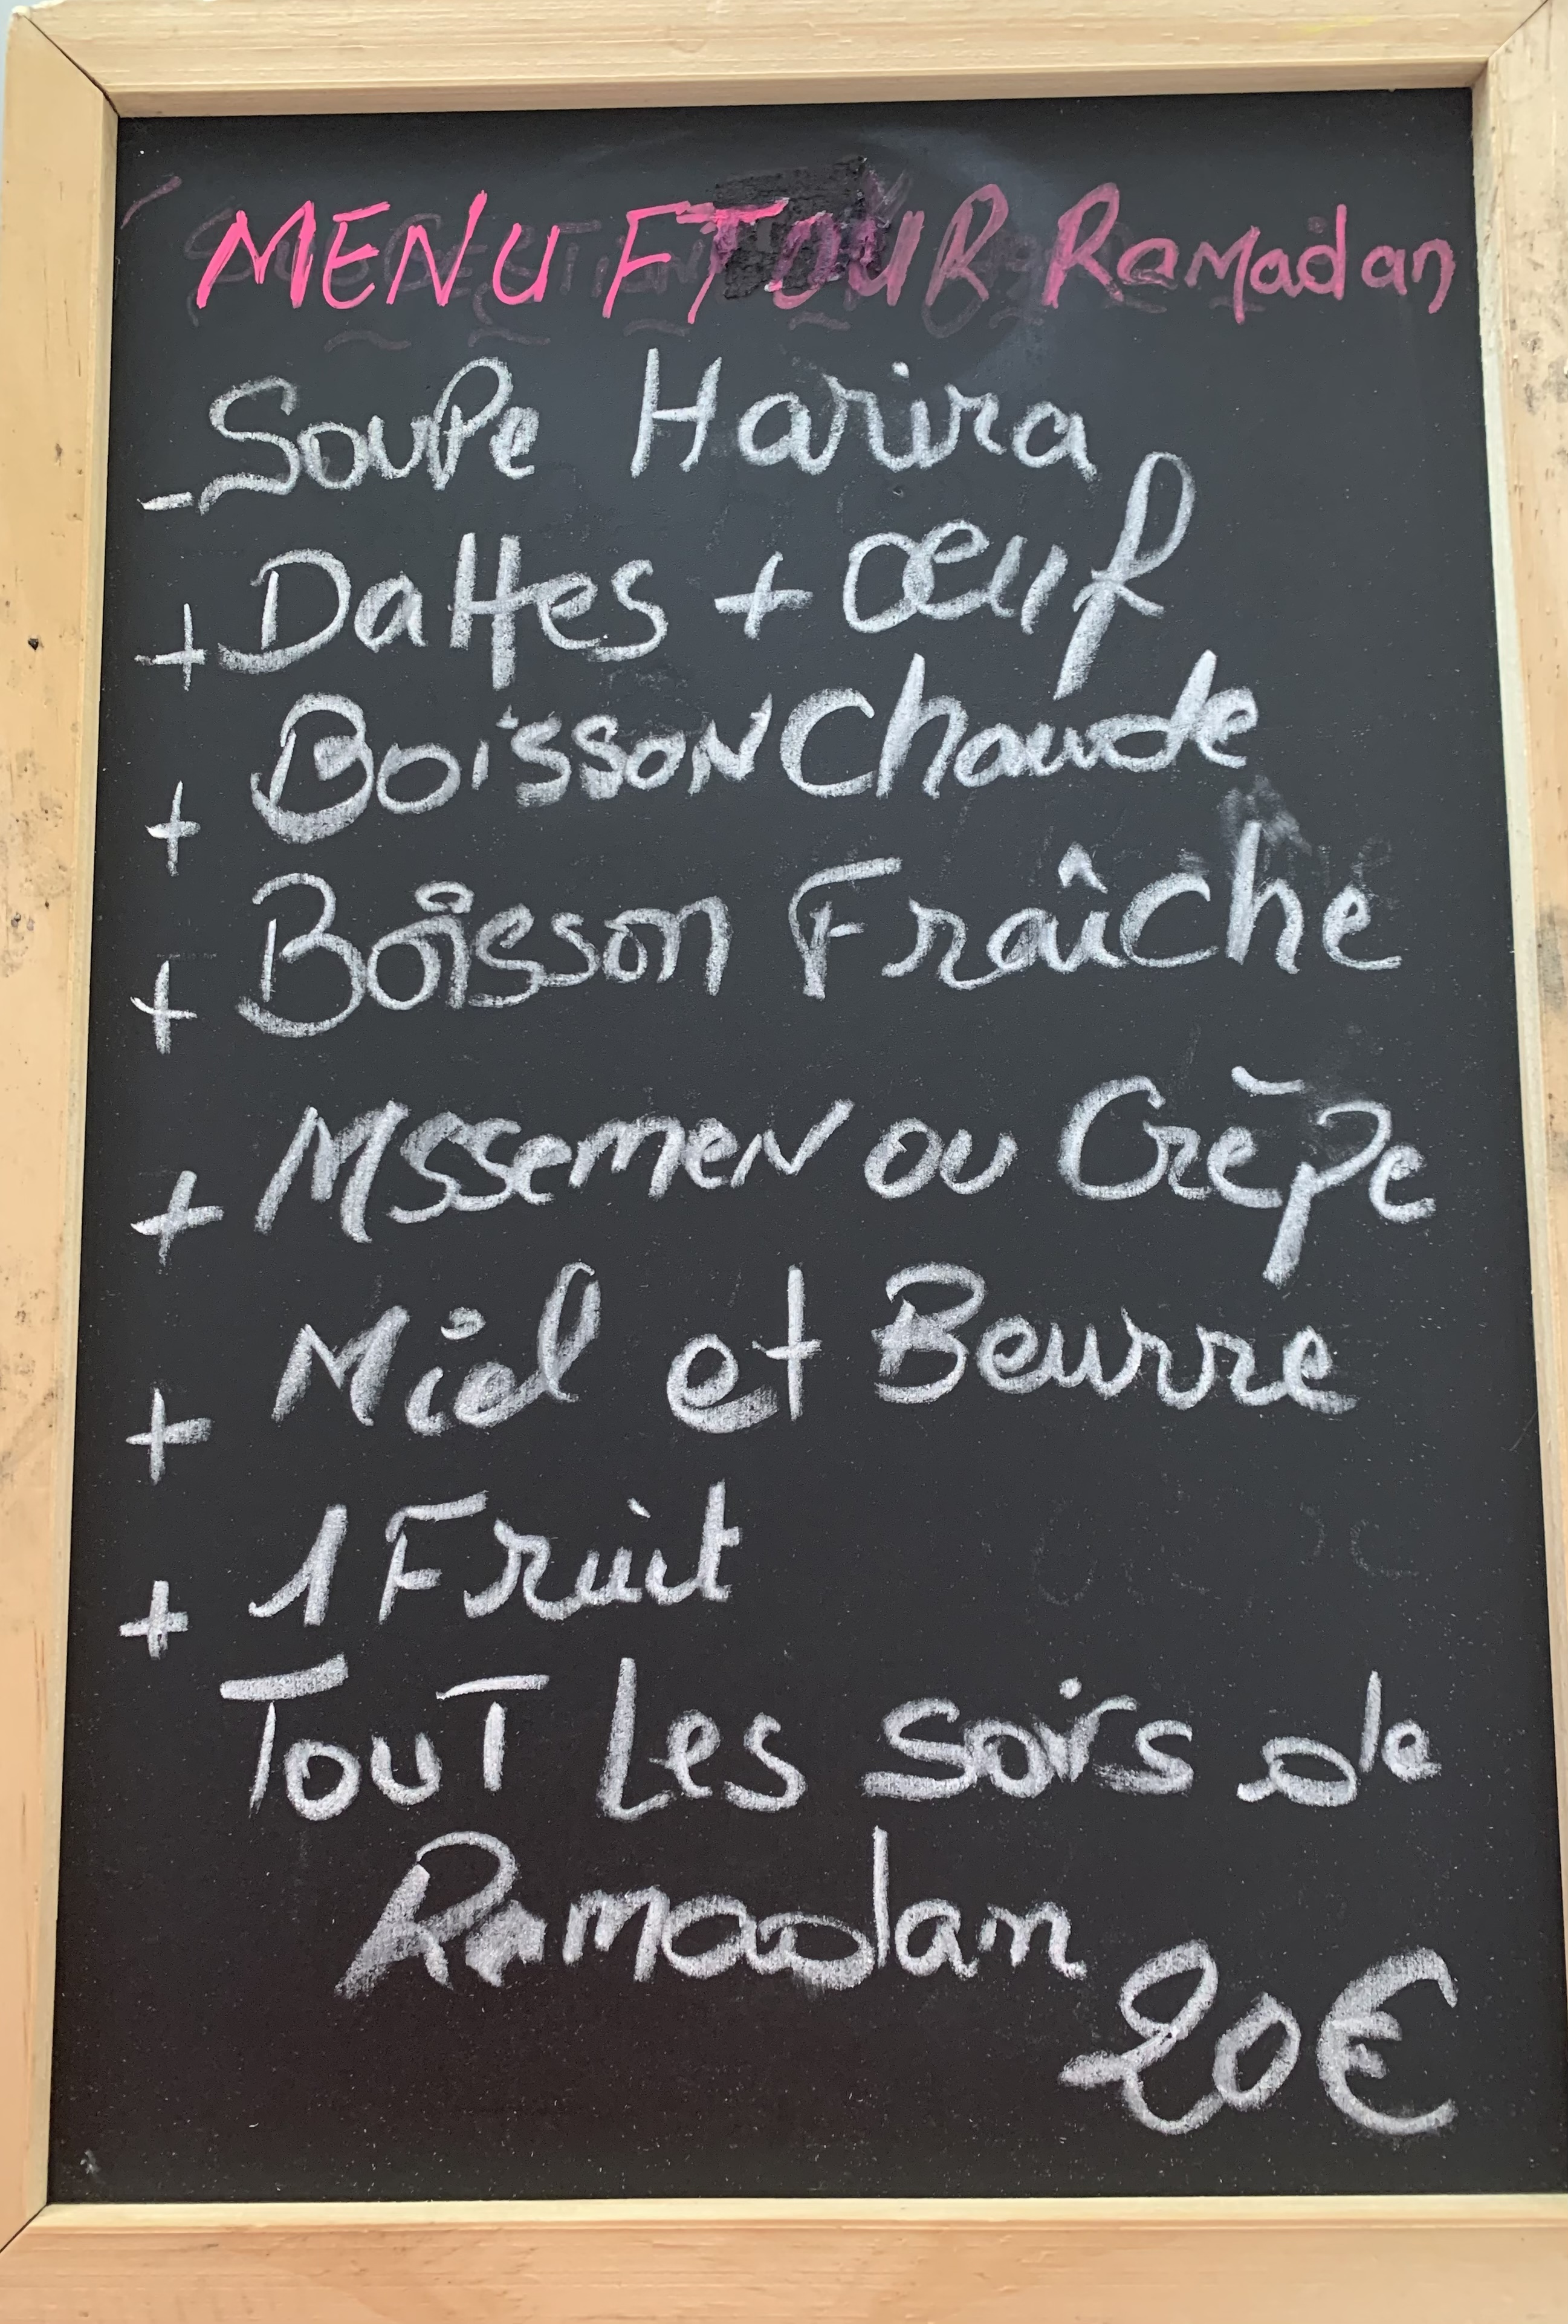 MENU FTOUR Ramadan
- Soupe Harira
+ Dattes + œuf
+ Boisson Chaude
+ Boisson Fraîche
+ Mssemen ou Crêpe
+ Miel et Beurre
+ 1 Fruit
Tout Les soirs de
Ramadan
20€